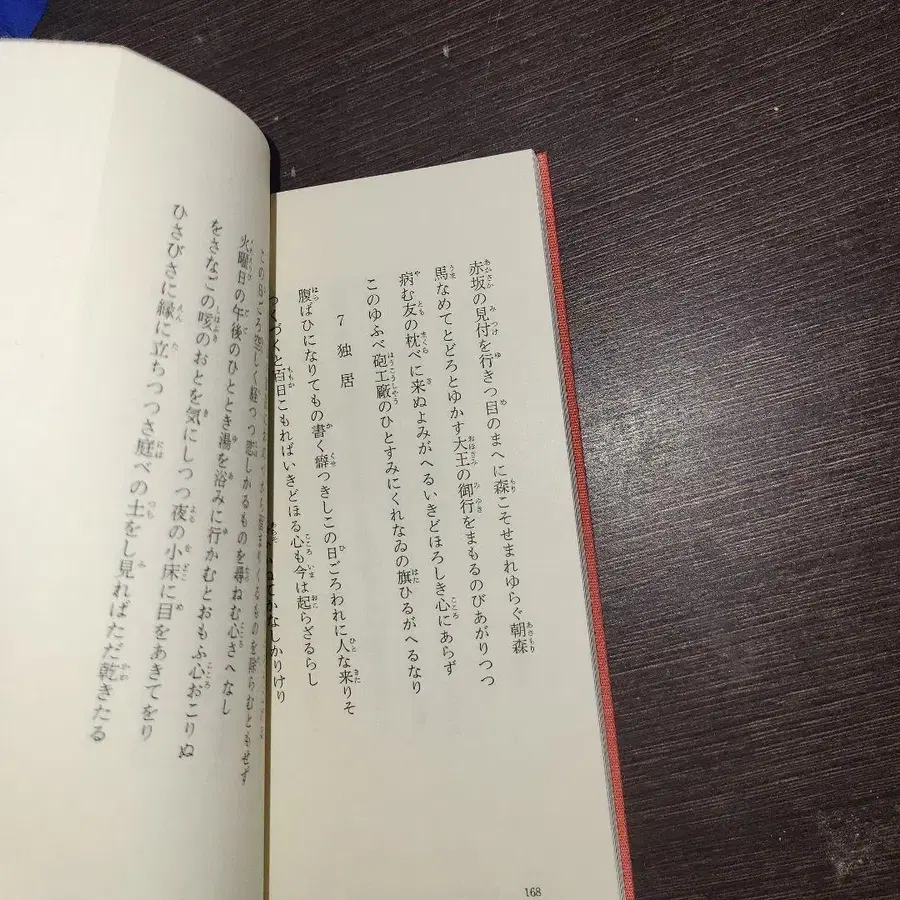 赤坂の見付を行きつ目のまへに森こそせまれゆらぐ朝森
馬なめてとどろとゆかす大王の御行をまもるのびあがりつつ
病む友の枕べに来ぬよみがへるいきどほろしき心にあらず
このゆふべ砲工廠のひとすみにくれなゐの旗ひるがへるなり
7 独居
腹ばひになりてもの書く癖つきしこの日ごろわれに人な来りそ
つくづくと百日こもればいきどほる心も今は起らざるらし
かねてかなしかりけり
くるものを除らむともせず
この日ごろ空しく経つつ恋しかるものを尋ねむ心さへなし
火曜日の午後のひととき湯を浴みに行かむとおもふ心おこりぬ
をさなごの咳のおとを気にしつつ夜の小床に目をあきてをり
ひさびさに縁に立ちつつさ庭べの土をし見ればただ乾きたる
168